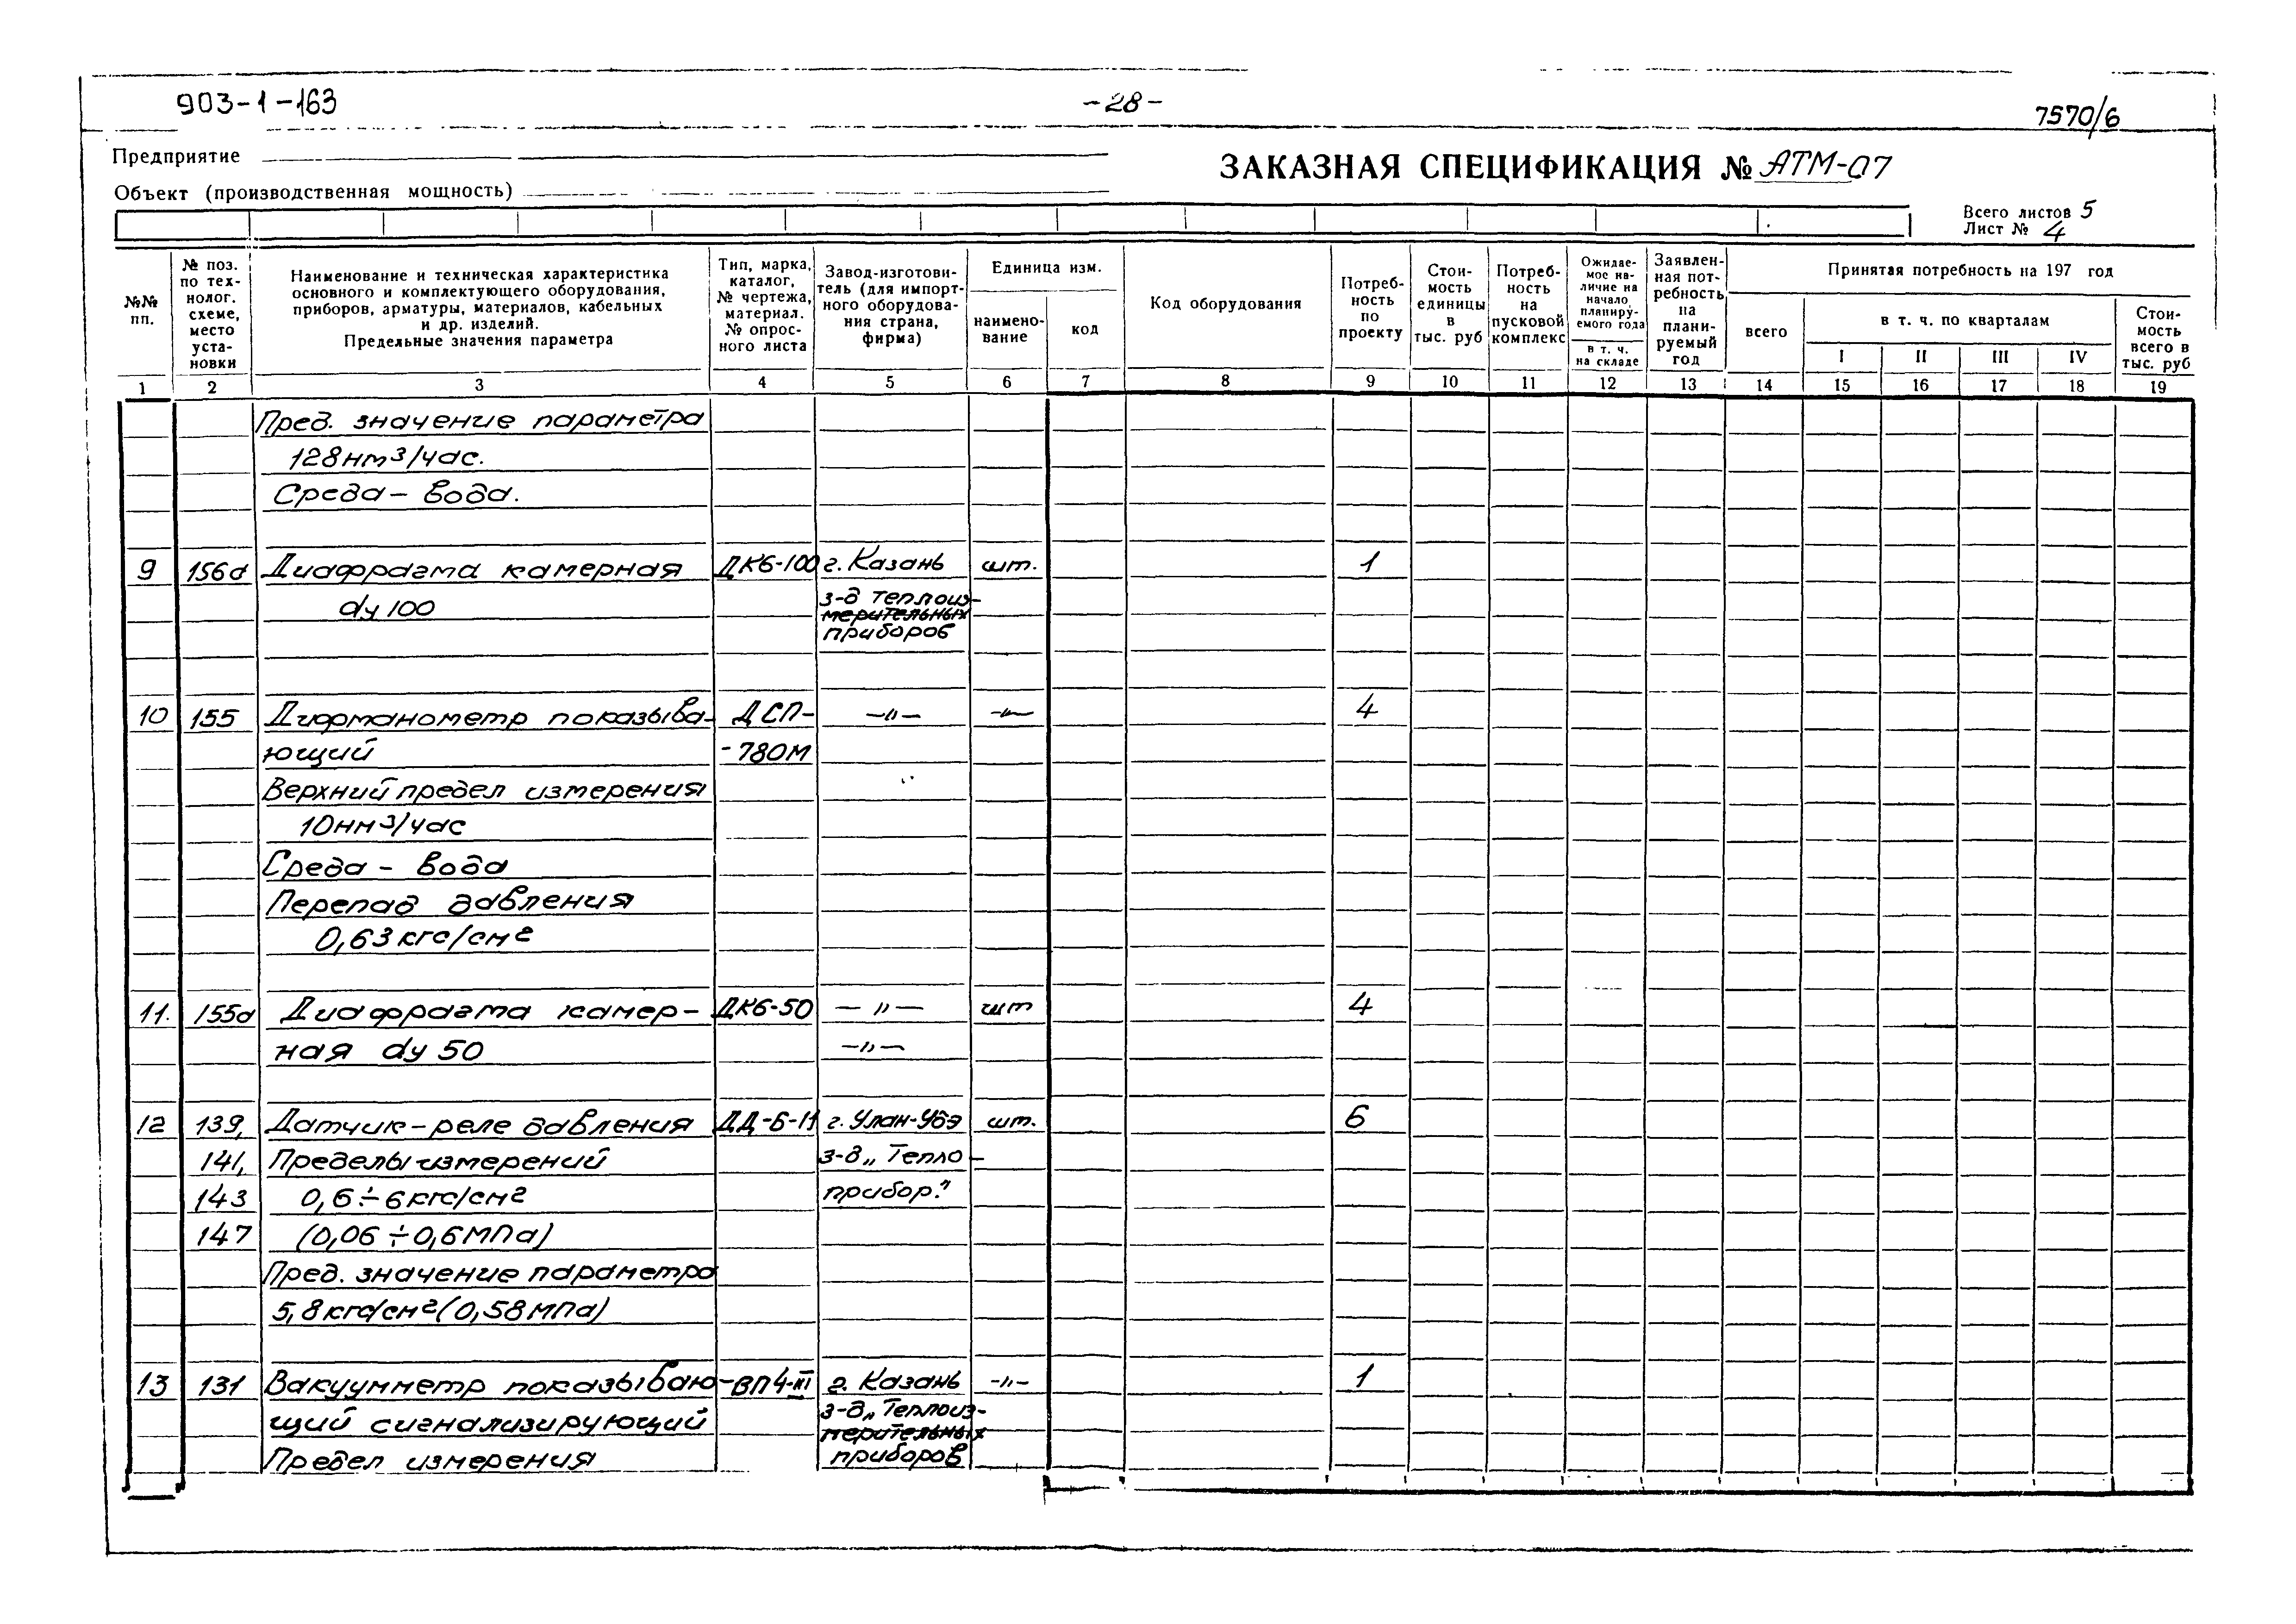 903-1-163
-28-
7570/6
Предприятие
ЗАКАЗНАЯ СПЕЦИФИКАЦИЯ № АТМ-07
Объект (производственная мощность)
Всего листов 5
Лист № 4
№№ пп.
№ поз. по тех-нолог. схеме, место уста-новки
Наименование и техническая характеристика
основного и комплектующего оборудования,
приборов, арматуры, материалов, кабельных
и др. изделий.
Предельные значения параметра
Тип, марка, каталог, № чертежа, материал. № опрос-ного листа
Завод-изготови-тель (для импорт-ного оборудова-ния страна, фирма)
Единица изм.
наимено-вание
код
Код оборудования
Потреб-ность по проекту
Стои-мость единицы в тыс. руб
Потреб-ность на пусковой комплекс
Ожидае-мое на-личие на начало планиру-емого года
в т. ч. на складе
Заявлен-ная пот-ребность на плани-руемый год
Принятая потребность на 197 год
всего
в т. ч. по кварталам
I II III IV
Стои-мость всего в тыс. руб
1 2 3 4 5 6 7 8 9 10 11 12 13 14 15 16 17 18 19
Пред. значение параметра
128нм3/час.
Среда - вода.
9 156а Диафрагма камерная ДК6-100 г. Казань шт. 1
dy 100 з-д теплоиз-
мерительных
приборов
10 155 Дифманометр показыва- ДСП- -"- -"- 4
ющий -780М
Верхний предел измерения
10нм3/час
Среда - вода
Перепад давления
0,63кгс/см2
11. 155а Диафрагма камер- ДК6-50 -"- шт 4
ная dy 50 -"-
12 139, Датчик-реле давления ДД-6-11 г. Улан-Удэ шт. 6
141, Пределы измерений з-д „Тепло-
143 0,6÷6кгс/см2 прибор."
147 (0,06÷0,6МПа)
Пред. значение параметра
5,8кгс/см2(0,58МПа)
13 131 Вакуумметр показываю- ВП4-III г. Казань -"- 1
щий сигнализирующий з-д„Теплоиз-
мерительных
Предел измерения приборов